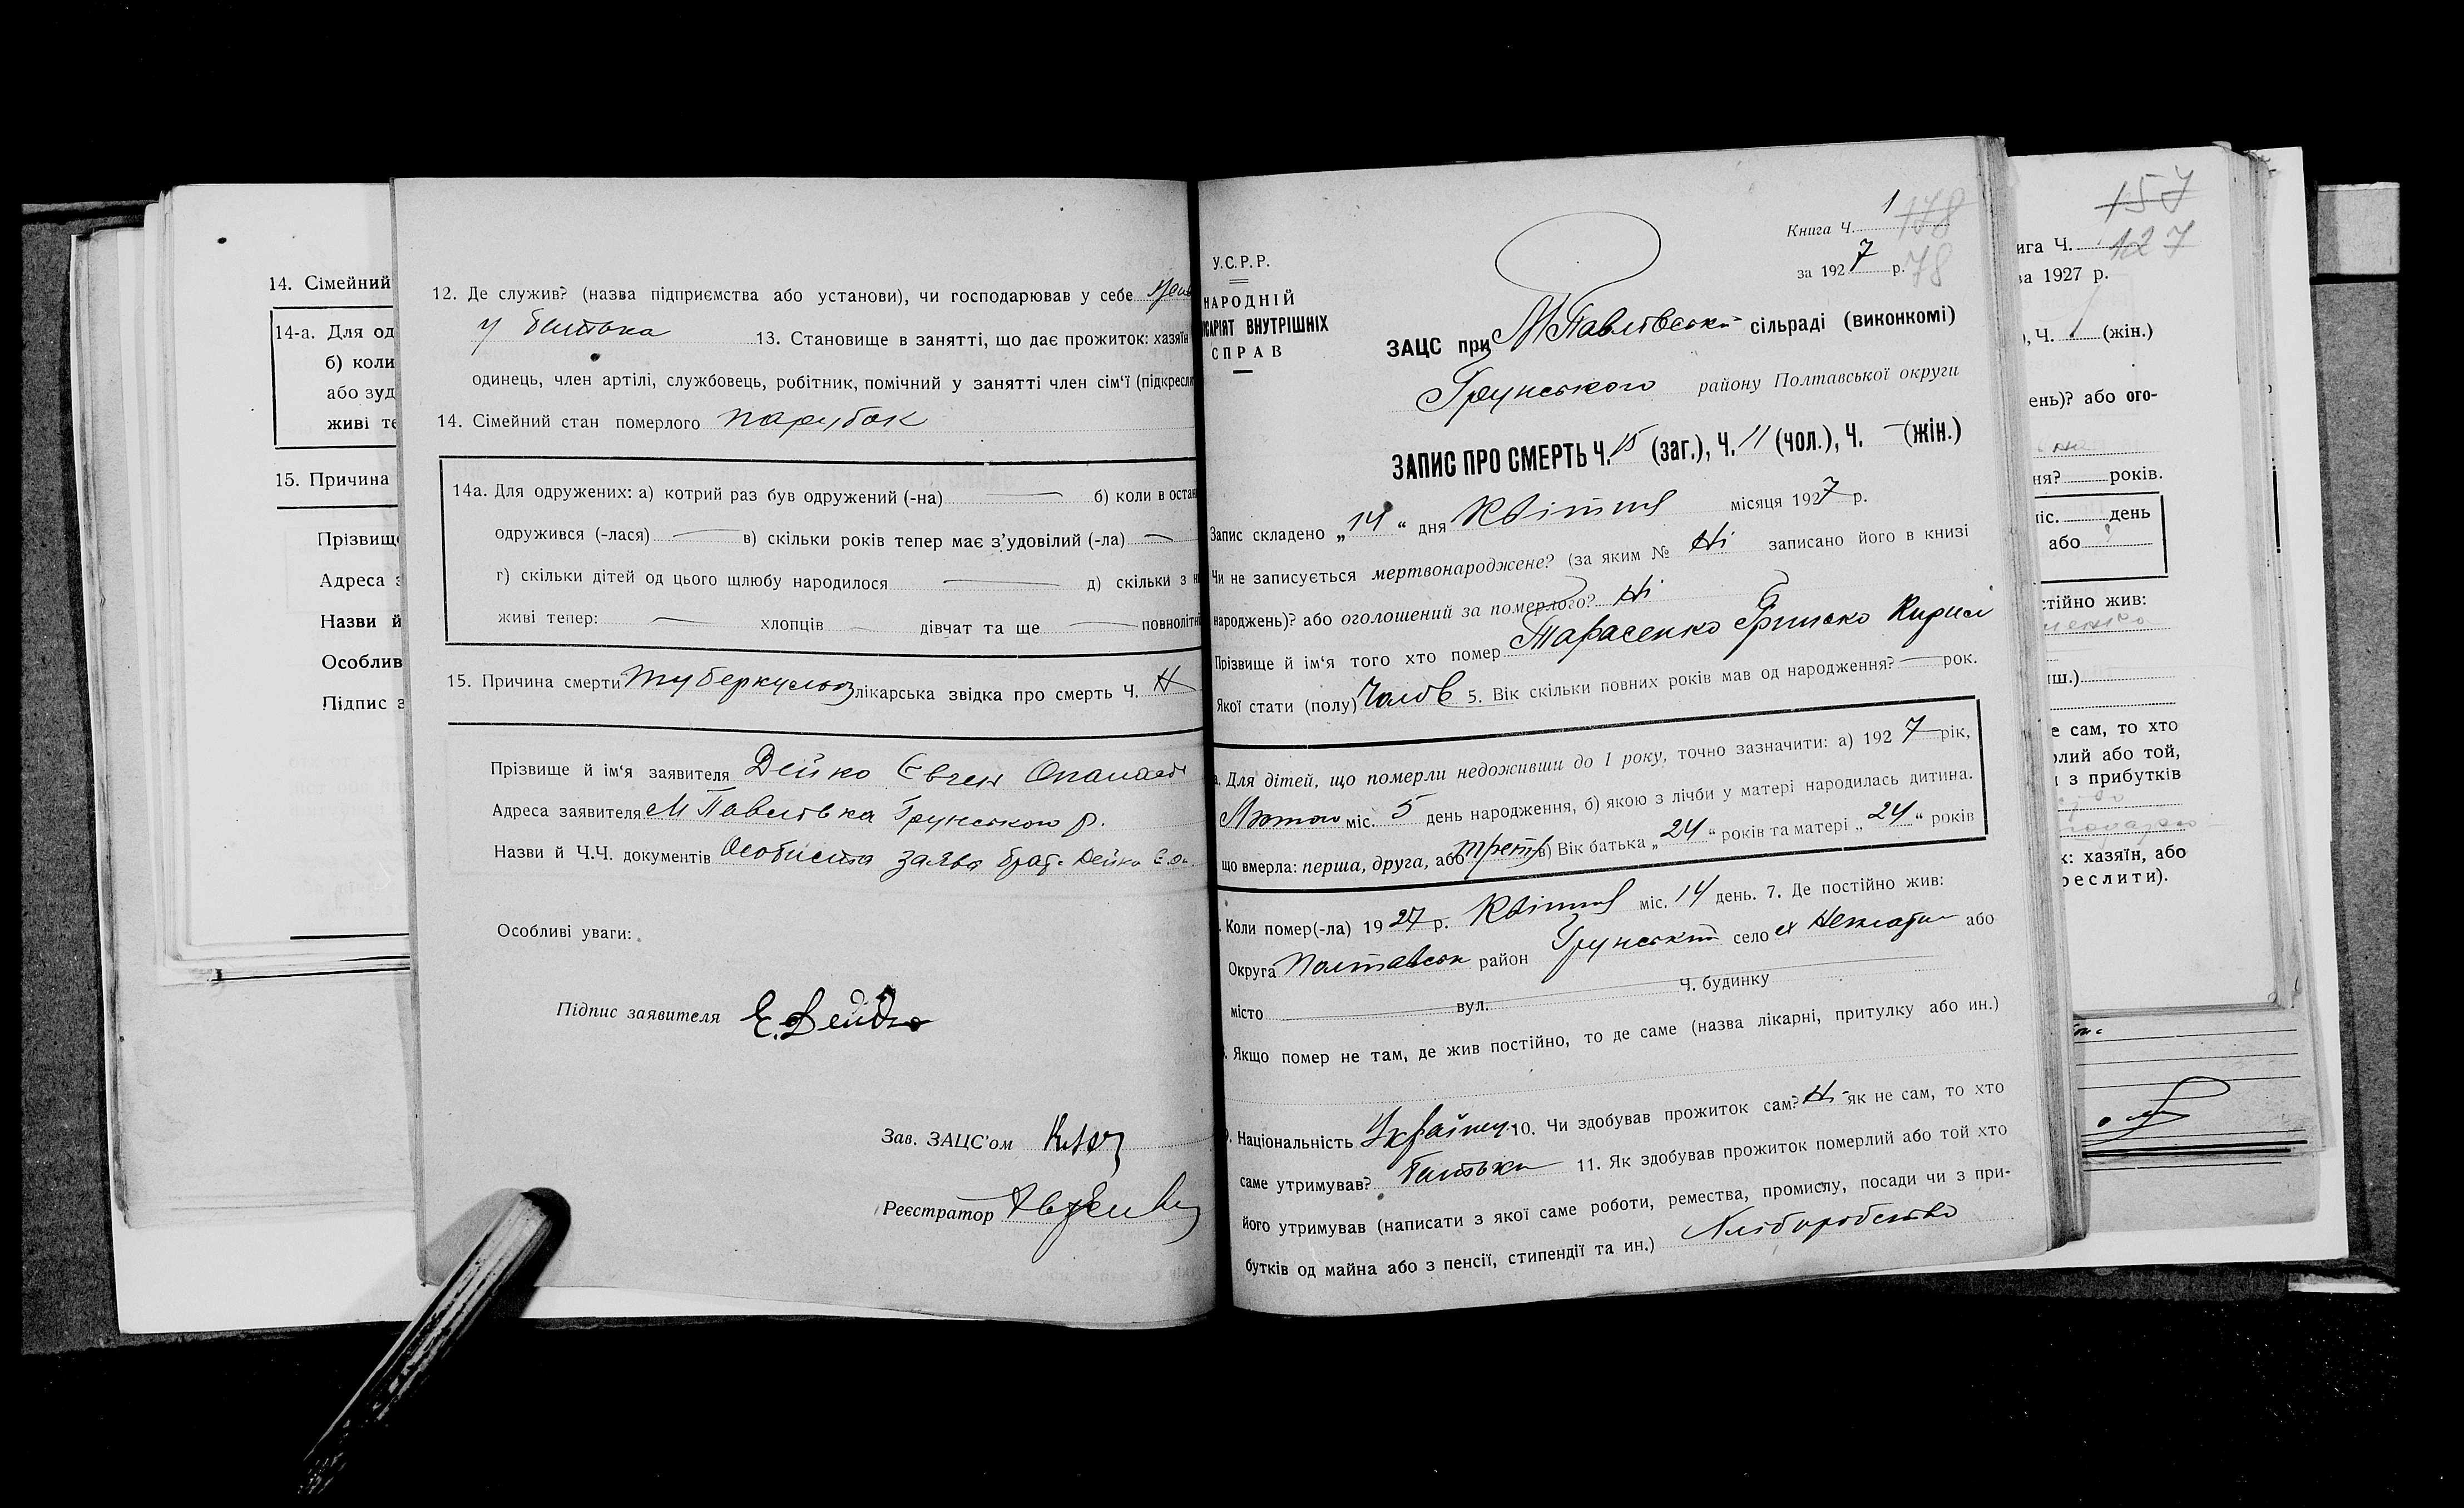 14. Сімейний
14-а. Для од
б) коли
або зуд
живі те
15. Причина
Прізвище
Адреса з
Назви й
Особлив
Підпис з
12. Де служив? (назва підприємства або установи), чи господарював у себе
у батька 13. Становище в занятті, що дає прожиток: хазяїн
одинець, член артілі, службовець, робітник, помічний у занятті член сім'ї (підкресли
14. Сімейний стан померлого парубок
14а. Для одружених: а) котрий раз був одружений (-на) — б) коли в остан
одружився (-лася) — в) скільки років тепер має з'удовілий (-ла) —
г) скільки дітей од цього щлюбу народилося — д) скільки з н
живі тепер: — хлопців — дівчат та ще — повнолітні
15. Причина смерти туберкульоз лікарська звідка про смерть Ч. Н
Прізвище й ім'я заявителя Дейко Євген Опанасов
Адреса заявителя М Павлівка Грунського р.
Назви й Ч.Ч. документів Особиста заява брата Дейко Є. О.
Особливі уваги:
Підпис заявителя Є. Дейко
Зав. ЗАЦС'ом
Реєстратор
Книга Ч. 1 178
за 1927 р. 78
У.С.Р.Р.
НАРОДНІЙ
ІСАРІЯТ ВНУТРІШНІХ
СПРАВ
ЗАЦС при МПавлівській сільраді (виконкомі)
Грунського району Полтавської округи
ЗАПИС ПРО СМЕРТЬ Ч. 15 (заг.), Ч. 11 (чол.), Ч. — (жін.)
Запис складено „14“ дня Квітня місяця 1927 р.
Чи не записується мертвонароджене? (за яким № Ні записано його в книзі
народжень)? або оголошений за померлого? Ні
Прізвище й ім'я того хто помер Тарасенко Грицько Кирил
Якої стати (полу) Чолов 5. Вік скільки повних років мав од народження? — рок.
а. Для дітей, що померли недоживши до 1 року, точно зазначити: а) 1927 рік,
Лютого міс. 5 день народження, б) якою з лічби у матері народилась дитина.
що вмерла: перша, друга, або треть в) Вік батька „24“ років та матері „24“ років
Коли помер(-ла) 1927 р. Квітня міс. 14 день. 7. Де постійно жив:
Округа Полтавськ район Грунський село х або
місто вул. Ч. будинку
Якщо помер не там, де жив постійно, то де саме (назва лікарні, притулку або ин.)
Національність Українец 10. Чи здобував прожиток сам? Ні як не сам, то хто
саме утримував? Батьки 11. Як здобував прожиток померлий або той хто
його утримував (написати з якої саме роботи, ремества, промислу, посади чи з при-
бутків од майна або з пенсії, стипендії та ин.) Хліборобство
157
ига Ч. 127
за 1927 р.
), Ч. (жін.)
ень)? або ого-
ня? років.
міс. день
або
стійно жив:
иш.)
е сам, то хто
олий або той,
и з прибутків
к: хазяїн, або
реслити).